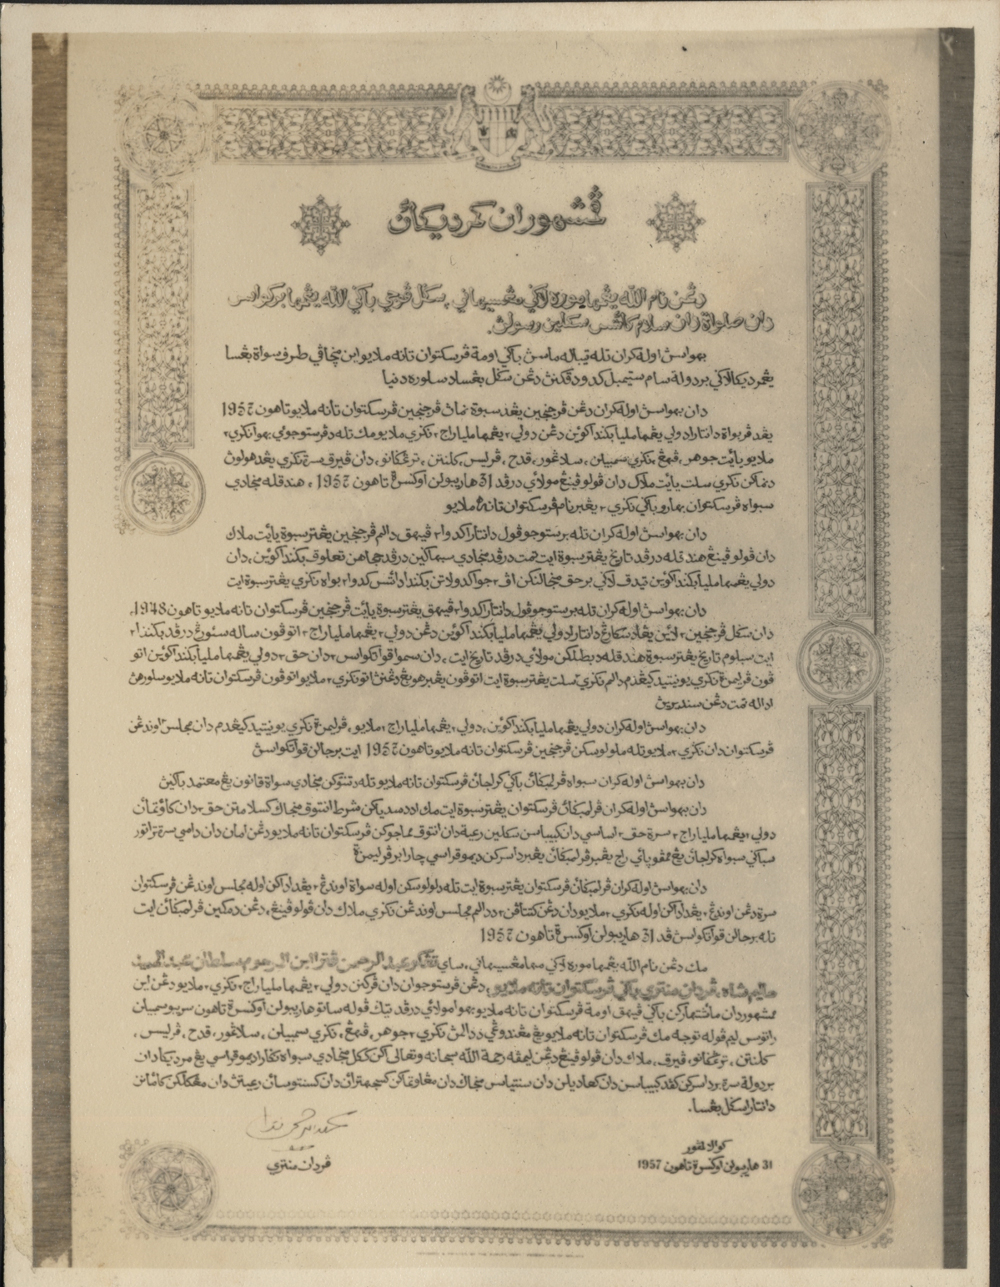 ڤمشهوران كمرديكاءن
دڠن نام الله يڠمها موره لاݢي مڠسيهاني، سݢل ڤوجي باݢي الله يڠمها بركواس
دان صلواة دان سلام كأتس سكلين رسولڽ.
بهواسڽ اوله كران تله تيباله ماسڽ باݢي اومة ڤرسكتوان تانه ملايو اين منچاڤي طرف سواة بڠسا
يڠمرديكا لاݢي بردولة سام ستيمبل كدودقكنڽ دڠن سݢل بڠسا دسلوره دنيا
دان بهواسڽ اوله كران دڠن ڤرجنجين يڠد سبوة نماڽ ڤرجنجين ڤرسكتوان تانه ملايو تاهون 1957
يڠد ڤربواة دانتارا دولي يڠمها مليا بݢندا كوين دڠن دولي٢ يڠمها مليا راج٢ نݢري ملايو مك تله دڤرستوجوءي بهوا نݢري٢
ملايو يائيت جوهر، ڤهڠ، نݢري سمبيلن، سلاڠور، قدح، ڤرليس، كلنتن، ترڠݢانو، دان ڤيرق سرة نݢري٢ يڠدهولوڽ
دنماكن نݢري٢ سلت يائيت ملاك دان ڤولو ڤينڠ مولائي درڤد 31 هاريبولن اوݢوس تاهون 1957، هندقله منجادي
سبواه ڤرسكتوان بهارو باݢي نݢري٢ يڠبرنام ڤرسكتوان تانه ملايو
دان بهواسڽ اوله كران تله برستوجو ڤول دانتارا كدوا٢ ڤيهق دالم ڤرجنجين يڠترسبوة يائيت ملاك
دان ڤولو ڤينڠ هندقله درڤد تاريخ يڠترسبوة ايت تمت درڤد منجادي سبهاݢين درڤد جاجهن تعلوق بݢندا كوين، دان
دولي يڠمها مليا بݢندا كوين تيدق لاݢي برحق منجالنكن اڤ٢ جوا كدولاتن بݢندا دأتس كدوا٢ بواه نݢري يڠترسبوة ايت
دان بهواسڽ اوله كران تله برستوجو ڤول دانتارا كدوا٢ ڤيهق يڠترسبوة يائيت ڤرجنجين ڤرسكتوان تانه ملايو تاهون 1948،
دان سݢل ڤرجنجين٢ لائين يڠاد سكارڠ دانتارا دولي يڠمها مليا بݢندا كوين دڠن دولي٢ يڠمها مليا راج٢ اتوڤون ساله سئورڠ درڤد بݢندا٢
ايت سبلوم تاريخ يڠترسبوة هندقله دبطلكن مولائي درڤد تاريخ ايت، دان سموا قوا كواس٢ دان حق٢ دولي يڠمها مليا بݢندا كوين اتو
ڤون ڤرليمن نݢري يونيتيد كيڠدم دالم نݢري٢ سلت يڠترسبوة ايت اتوڤون يڠبرهوبڠ دڠنڽ اتو نݢري٢ ملايو اتوڤون ڤرسكتوان تانه ملايو سلورهڽ
اداله تمت دڠن سنديريڽ
دان بهواسڽ اوله كران دولي يڠمها مليا بݢندا كوين، دولي٢ يڠمها مليا راج٢ ملايو، ڤرليمن نݢري يونيتيد كيڠدم دان مجلس٢ اوندڠن
ڤرسكتوان دان نݢري٢ ملايو تله ملولوسكن ڤرجنجين ڤرسكتوان تانه ملايو تاهون 1957 ايت برجالن قوا كواسڽ
دان بهواسڽ اوله كران سبواه ڤرلمبݢاءن باݢي كراجاءن ڤرسكتوان تانه ملايو تله دتنتوكن منجادي سواة قانون يڠ معتمد باݢيڽ
دان بهواسڽ اوله كران ڤرلمبݢاءن ڤرسكتوان يڠترسبوة ايت مك اد دسدياكن شرط انتوق منجاݢ كسلامتن حق٢ دان كاوتماءن
دولي٢ يڠمها مليا راج٢ سرة حق٢ اساسي دان كبيباسن سكلين رعية دان انتوق مماجوكن ڤرسكتوان تانه ملايو دڠن امان دان دامي سرة تراتور
سباݢي سبواه كراجاءن يڠ ممڤوڽائي راج يڠبرڤرلمبݢاءن يڠبرداسركن ديموقراسي چارا برڤرليمن
دان بهواسڽ اوله كران ڤرلمبݢاءن ڤرسكتوان يڠترسبوة ايت تله دلولوسكن اوله سواة اوندڠ٢ يڠد اداكن اوله مجلس اوندڠن ڤرسكتوان
سرة دڠن اوندڠ٢ يڠد اداكن اوله نݢري٢ ملايو دان دڠن كتتاڤن٢ ددالم مجلس اوندڠن نݢري ملاك دان ڤولو ڤينڠ، دڠن دمكين ڤرلمبݢاءن ايت
تله برجالن قوا كواسڽ ڤد 31 هاريبولن اوݢوس تاهون 1957
مك دڠن نام الله يڠمها موره لاݢي مها مڠسيهاني، ساي تڠكو عبدالرحمن ڤترا ابن المرحوم سلطان عبدالحميد
حليم شاه، ڤردان منتري باݢي ڤرسكتوان تانه ملايو، دڠن ڤرستوجوان دان ڤركنن دولي٢ يڠمها مليا راج٢ نݢري٢ ملايو دڠن اين
ممشهوردان مائعتيهاركن باݢي ڤيهق اومة ڤرسكتوان تانه ملايو بهوا مولائي درڤد تيݢ ڤوله ساتو هاريبولن اوݢوس تاهون سريبو سمبيلن
راتوس ليم ڤوله توجه مك ڤرسكتوان تانه ملايو يڠ مڠندوڠي ددالمڽ نݢري٢ جوهر، ڤهڠ، نݢري سمبيلن، سلاڠور، قدح، ڤرليس،
كلنتن، ترڠݢانو، ڤيرق، ملاك دان ڤولو ڤينڠ دڠن ليمڤه رحمة الله سبحانه وتعالى اكن ككل منجادي سبواه نݢارا ديموقراسي يڠ مرديكا دان
بردولة سرة برداسركن كڤد كبيباسن دان كعاديلن دان سنتياس منجاݢ دان مڠاوتماكن كسجهتراءن دان كسنتوساءن رعيتڽ دان مڠككلكن كامانن
دانتارا سݢل بڠسا.
كوالا لمڤور
31 هاريبولن اوݢوس تاهون 1957
ڤردان منتري